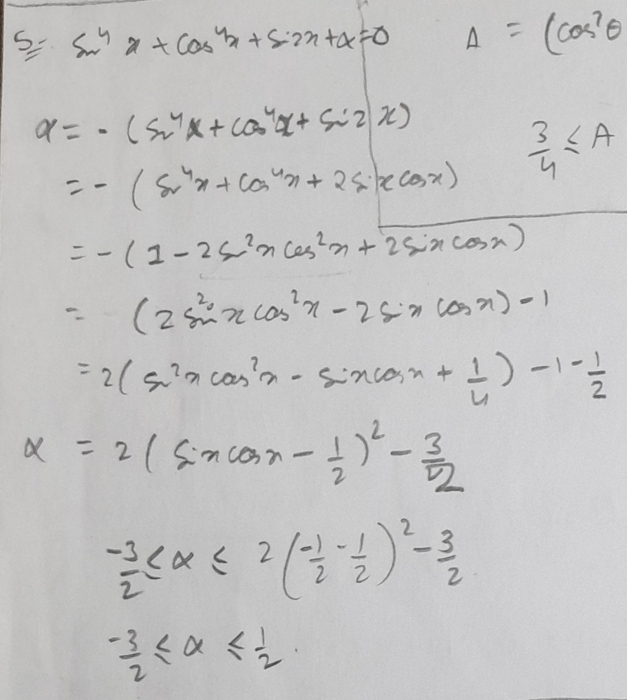 5= sin⁴x + cos⁴x + sin2x + α = 0
A = (cos²θ
α = - (sin⁴x + cos⁴x + sin2x)
3/4 ≤ A
= - (sin⁴x + cos⁴x + 2sinxcosx)
= - (1 - 2sin²x cos²x + 2sinxcosx)
= (2sin²x cos²x - 2sinx cosx) - 1
= 2(sin²x cos²x - sinxcosx + 1/4) - 1 - 1/2
α = 2(sinxcosx - 1/2)² - 3/2
-3/2 ≤ α ≤ 2(-1/2 - 1/2)² - 3/2
-3/2 ≤ α ≤ 1/2.